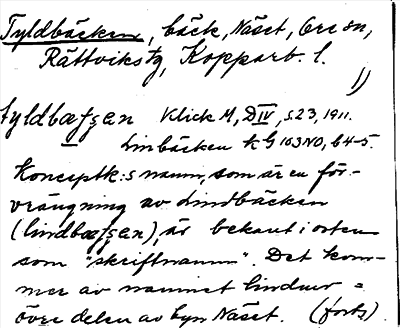 Tyldbäcken, bäck, Näset, Ore sn,
Rättviks tg, Kopparb. l.
1)
tyldbæfsen Klick M, DIV, s 23, 1911.
Linbäcken k G 103 NO, b 4-5.
Konceptk:s namn, som är en för-
vrängning av Lindbäcken
(lindbæfsen), är bekant i orten
som "skriftnamn". Det kom-
mer av namnet lindmr =
övre delen av byn Näset. (forts)